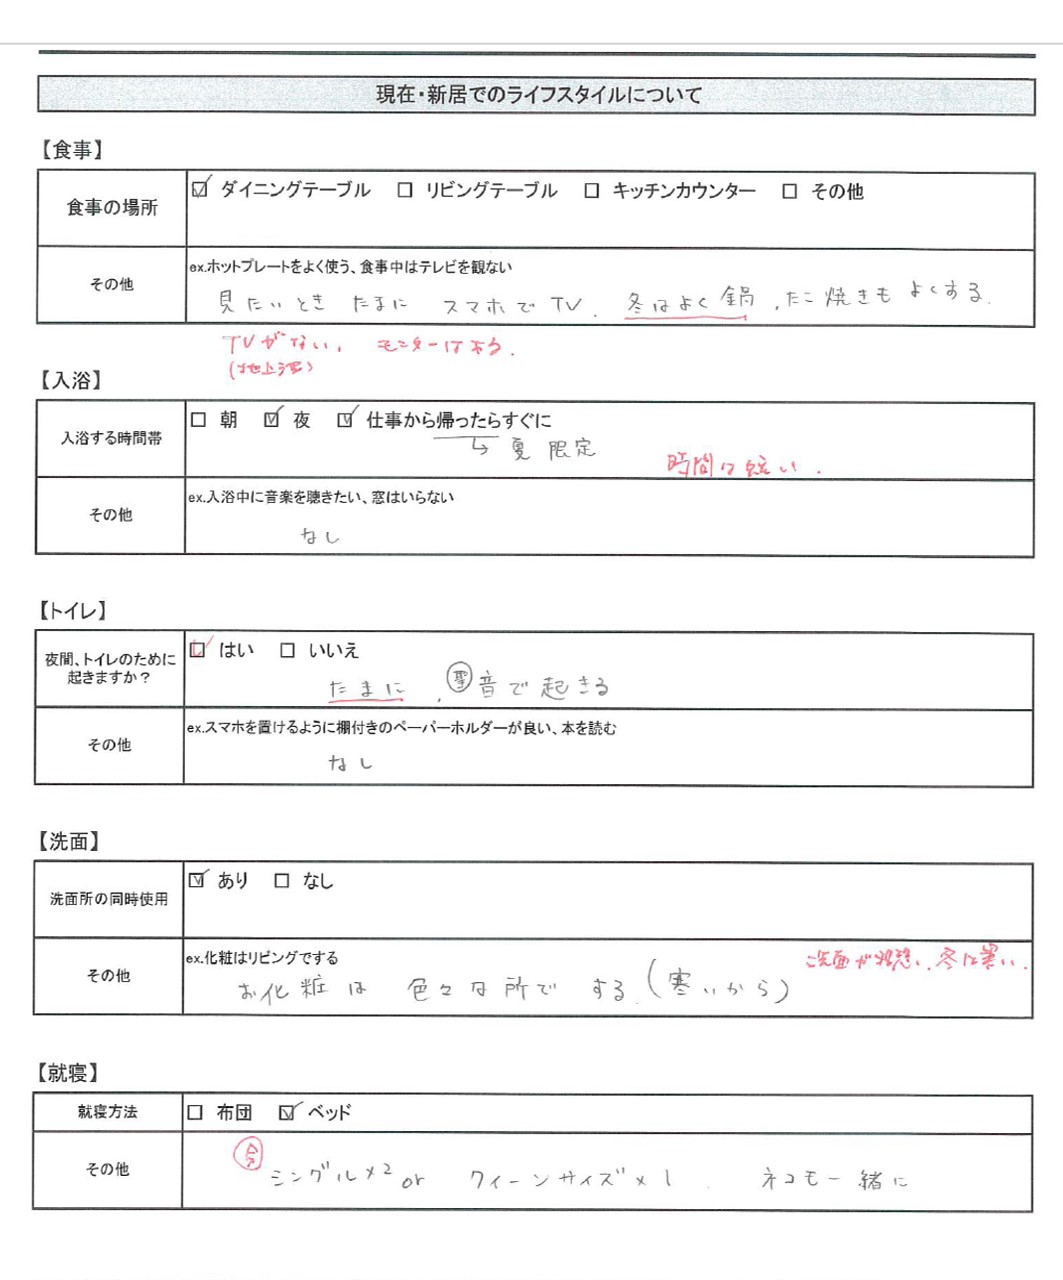 現在・新居でのライフスタイルについて
【食事】
食事の場所
☑ ダイニングテーブル ☐ リビングテーブル ☐ キッチンカウンター ☐ その他
その他
ex.ホットプレートをよく使う、食事中はテレビを観ない
見たいとき たまに スマホでTV. 冬はよく鍋,たこ焼きもよくする.
TVがない. モニターはある.
(地上波)
【入浴】
入浴する時間帯
☐ 朝 ☑ 夜 ☑ 仕事から帰ったらすぐに
↳ 夏限定
時間は短い.
その他
ex.入浴中に音楽を聴きたい、窓はいらない
なし
【トイレ】
夜間、トイレのために
起きますか?
☑ はい ☐ いいえ
たまに. 聖 音で起きる
その他
ex.スマホを置けるように棚付きのペーパーホルダーが良い、本を読む
なし
【洗面】
洗面所の同時使用
☑ あり ☐ なし
その他
ex.化粧はリビングでする
洗面が 冬は寒い.
お化粧は 色々な所で する.(寒いから)
【就寝】
就寝方法
☐ 布団 ☑ ベッド
その他
今
シングル×2 or クィーンサイズ×1. ネコも一緒に